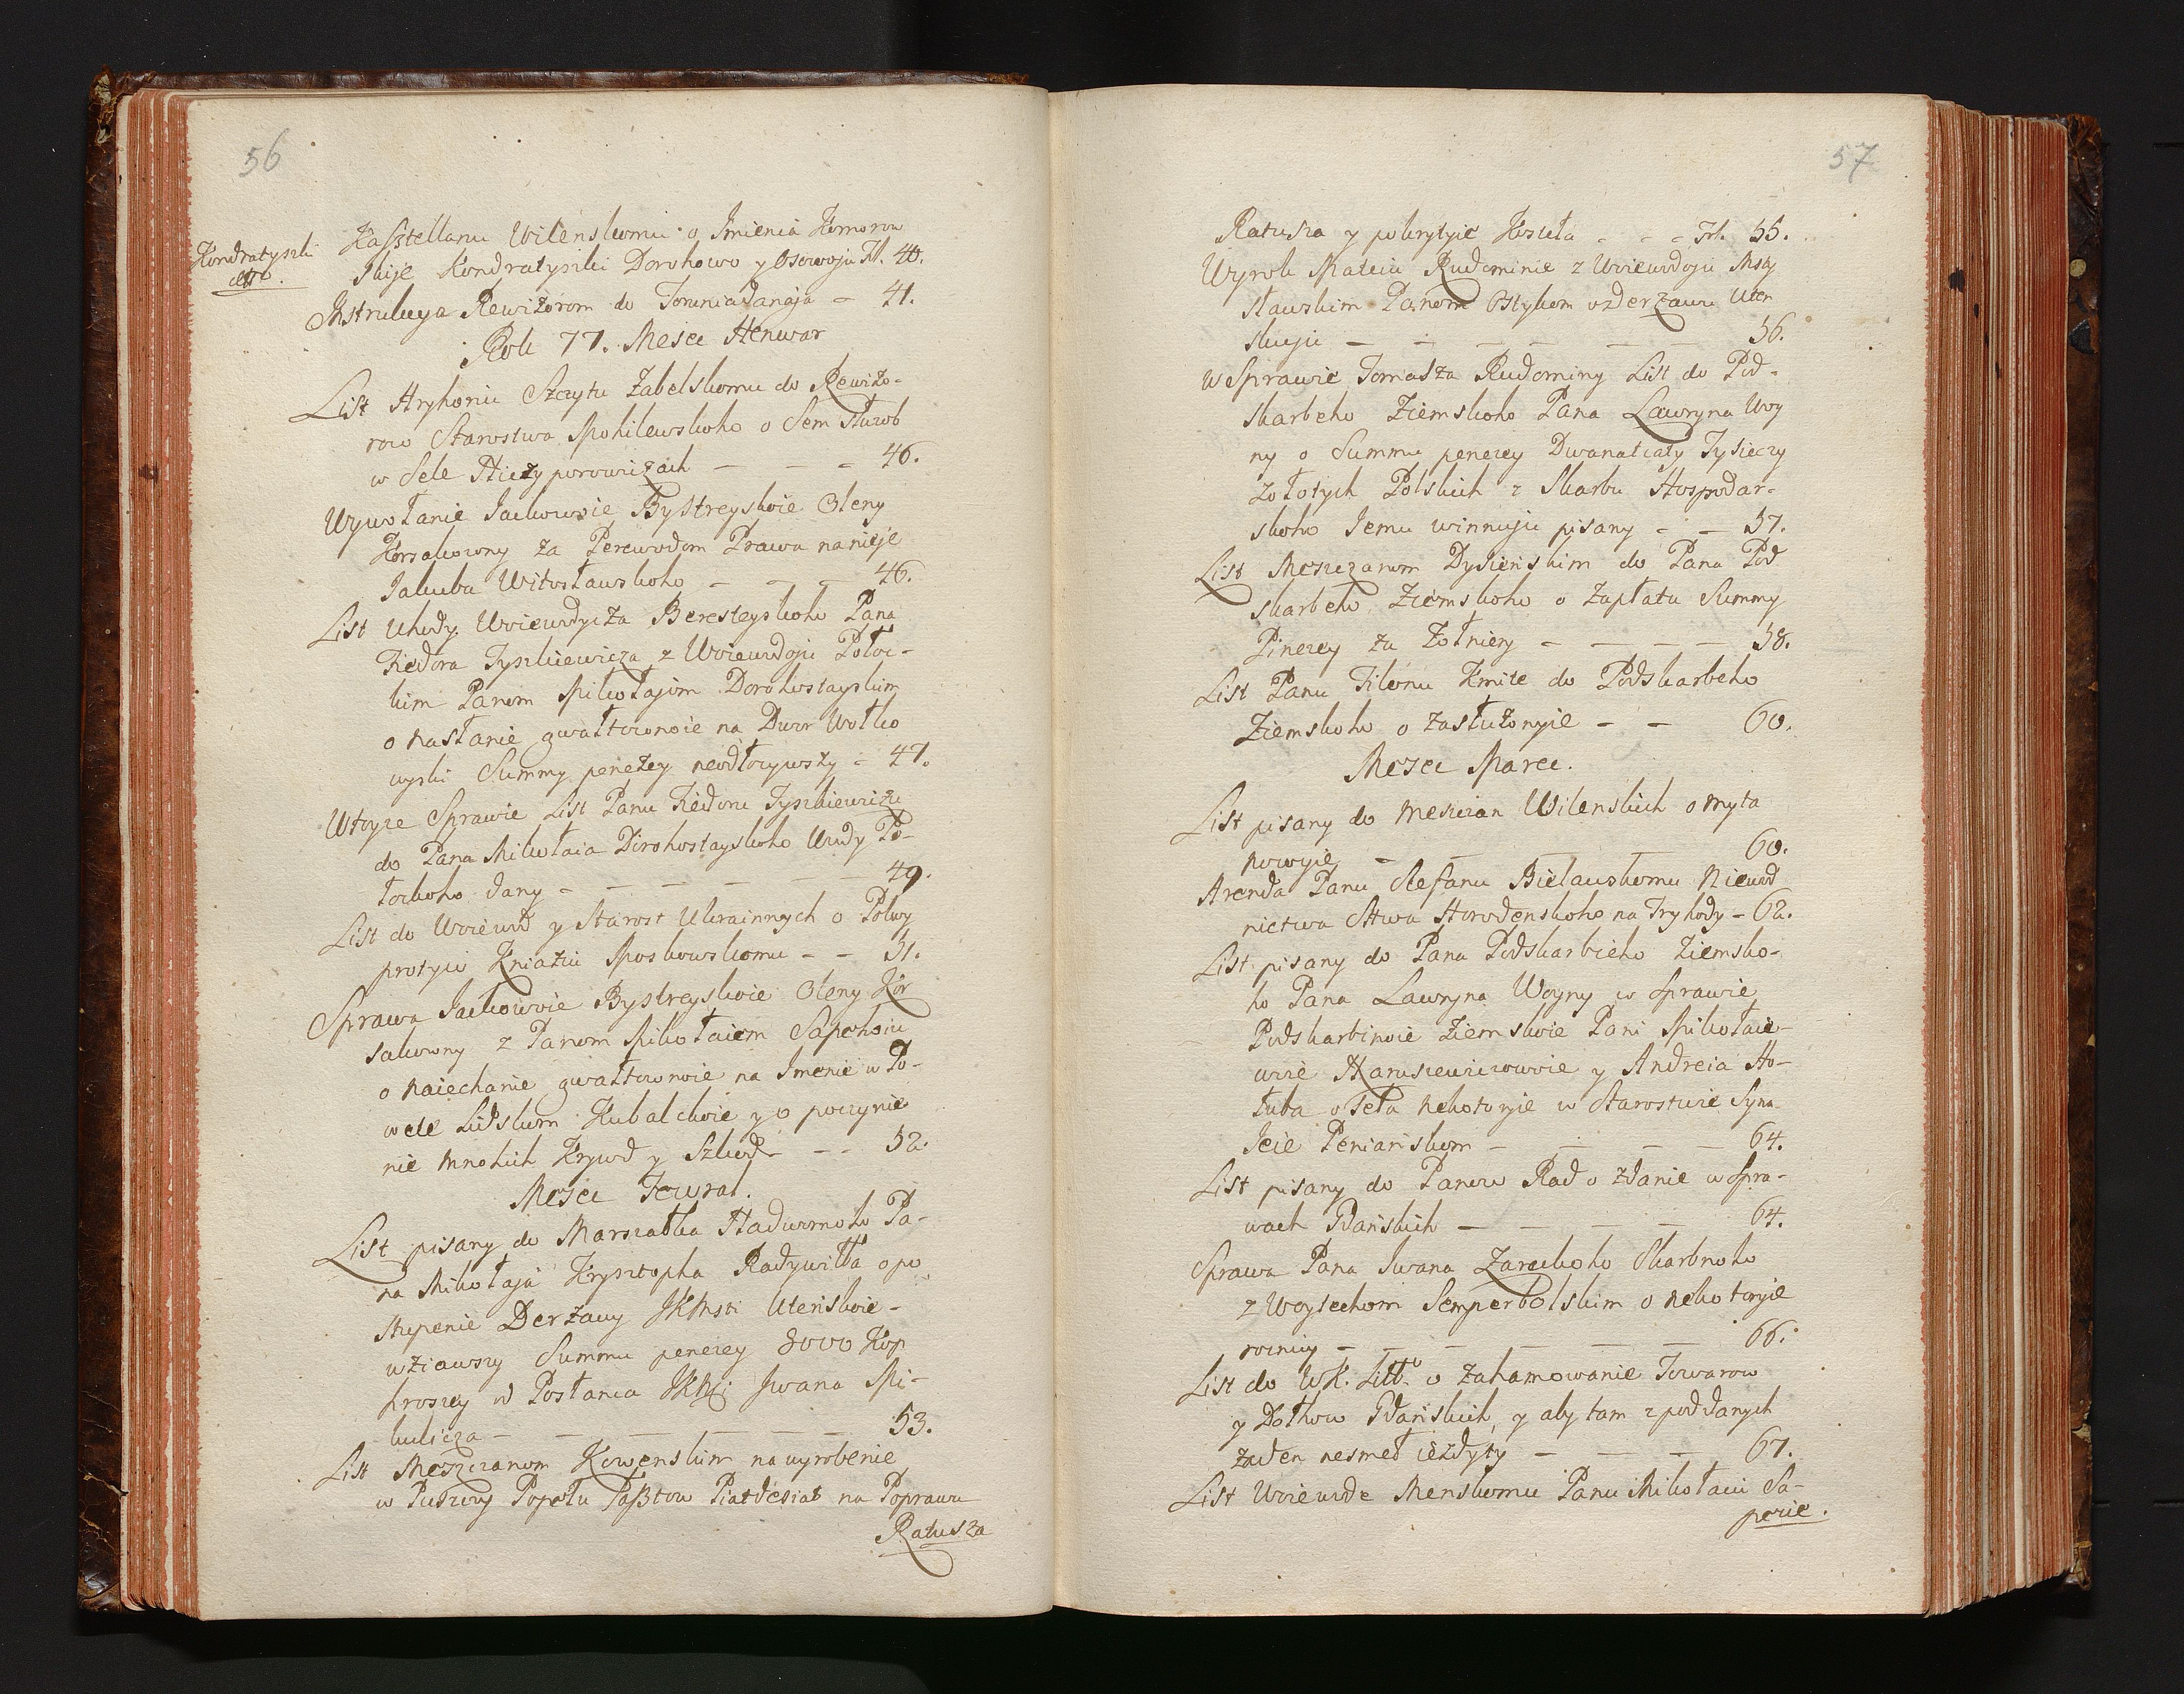 56
Kondratyszki
etc.
Kasztellanu Wilenskomu o Jmienia Komorow
skije Kondratyszki Dorohowo y Osowoju Fl. 40.
Jnstrukcya Rewizorom do Torunia danaja - 41.
Rok 77. Mesca Henwar
List Hryhoriu Szczytu Zabelskomu do Rewizo-
row Starostwa Mohilewskoho o Sem Służob
w Sele Nieżyporowiczach - - - 46.
Wywołanie Jackowoie Bystreyskoie Oleny
Korsakowny za Perewodom Prawa na nieje
Jakuba Witosławskoho - - - 46.
List Uhody Woiewodycza Beresteyskoho Pana
Fiedora Tyszkiewicza z Woiewodoju Połoc-
kim Panom Mikołajom Dorohostayskim
o nasłanie gwałtownoie na Dwor Wołko
wyski Summy penezey neodłożywszy - 47.
W toyże Sprawie List Panu Fiedoru Tyszkiewiczu
do Pana Mikołaia Dorohostayskoho Wwdy Po-
łockoho dany - - - - - - 49.
List do Woiewod y Starost Ukrainnych o Połwy
protyw Kniaziu Moskowskomu - - 51.
Sprawa Jackowoie Bystreyskoie Oleny Kor
sakowny z Panom Mikołaiem Sapehoiu
o naiechanie gwałtownoie na Jmenie w Po-
wete Lidskom Kubalckoie y o poczynie
nie mnohich Krywd y Szkod - - - 52.
Mesca Fewral.
List pisany do Marszałka Nadwornoho Pa-
na Mikołaja Krysztopha Radywiłła o po
stupenie Derżawy JKMsti Utenskoie -
wziawszy Summu penezey 3000 Kop
hroszey od Posłanca JKMsti Jwana Mi-
kulicza - - - - - - 53.
List Meszczanom Kowenskim na wyrobenie
w Puszczy Popełu Łasztow Piatdesiat na Poprawu
Ratusza
57
Ratusza y pokrytyie Koscieła - - - Fl. 55.
Wyrok Mateiu Rudominie z Woiewodoju Msty
sławskim Panom Ostykom o Derżawu Uten
skuju - - - - - - 56.
W Sprawie Tomasza Rudominy List do Pod-
skarbeho Ziemskoho Pana Lawryna Woy
ny o Summu penezey Dwanatcaty Tysieczy
Zołotych Polskich z Skarbu Hospodar-
skoho Jemu winnuju pisany - - 57.
List Meszczanom Dysienskim do Pana Pod
skarbeho Ziemskoho o Zapłatu Summy
Pinezey za Żołniery - - - - 58.
List Panu Filonu Kmite do Podskarbeho
Ziemskoho o Zasłużonyie - - 60.
Mesca Marca.
List pisany do Meszczan Wilenskich o Myta
nowyie - - - - - 60.
Arenda Panu Stefanu Bielauskomu Nieuwod
nictwa Stwa Horodenskoho na Try hody - 62.
List pisany do Pana Podskarbieho Ziemsko-
ho Pana Lawryna Woyny w Sprawie
Podskarbinoie Ziemskoie Pani Mikołaie-
woie Naruszewiczowoie y Andreia Ho-
łuba o Seła nekotoryie w Starostwie Syna
Jeie Penianskom - - - - 64.
List pisany do Panow Rad o zdanie w Spra-
wach Gdanskich - - - - 64.
Sprawa Pana Jwana Zareckoho Skarbnoho
z Woytechom Semperbolskim o nekotoryie
roznicy - - - - - - 66.
List do W.K. Litto o Zahamowanie Towarow
y Dołhow Gdanskich, y aby tam z poddanych
żaden nesmeł iezdyty - - - 67.
List Woiewode Menskomu Panu Mikołaiu Sa-
pezie.